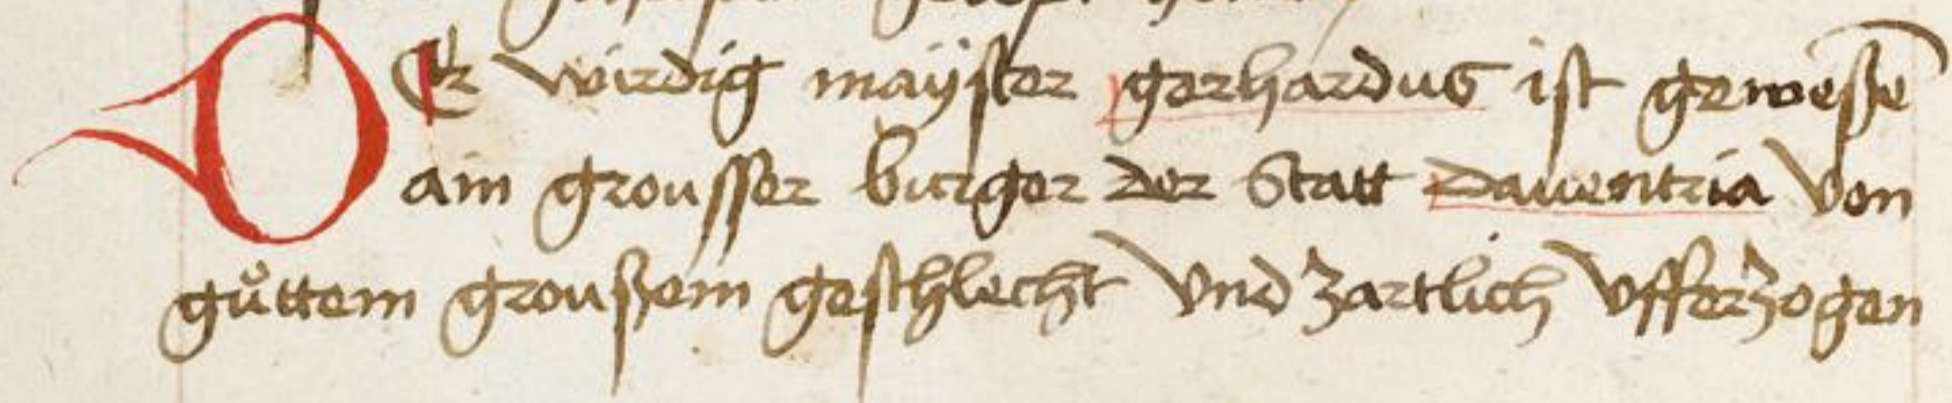 DEr wirdig maÿster gerhardus ist geweße
ain grousser burger der Statt Dauentria von
gůttem groußem geschlecht vnd zartlich vfferzogen